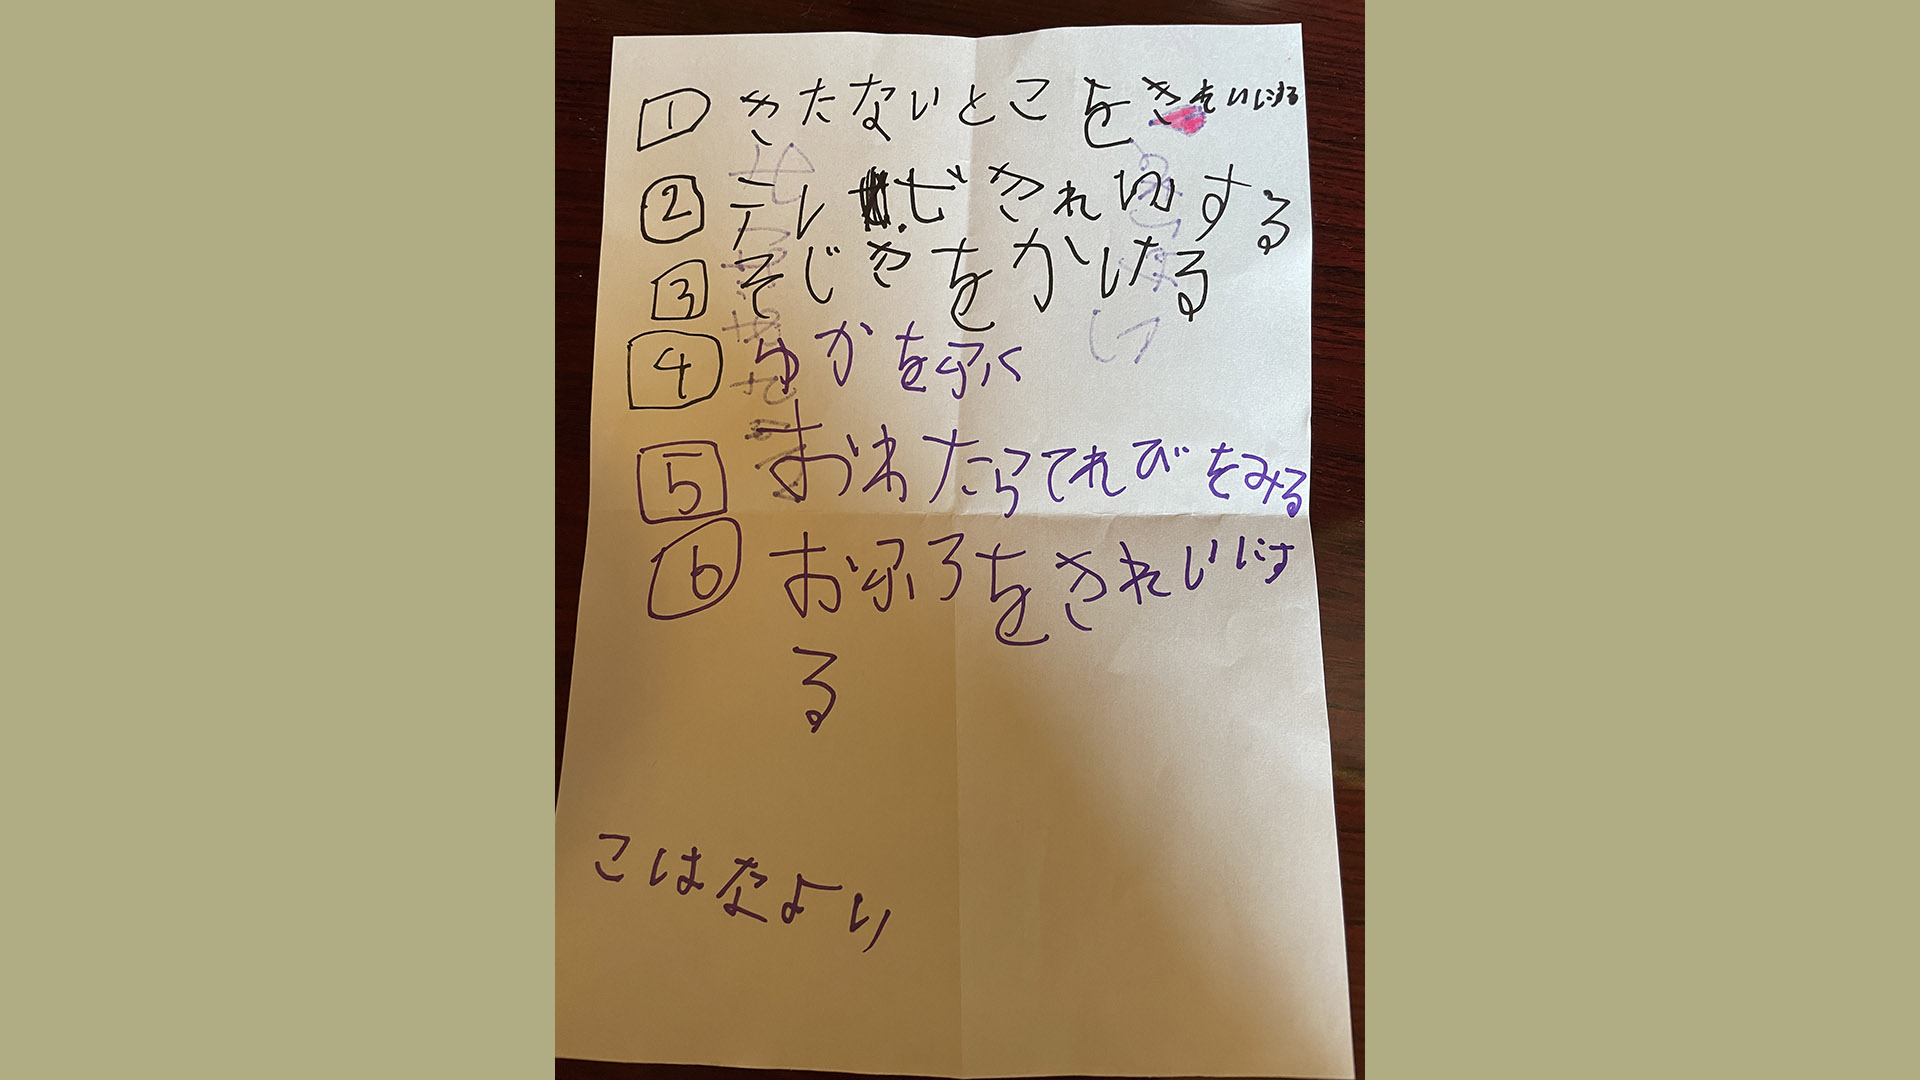 1 きたないとこをきれいにする
2 テレぜきれいにする
3 そじきをかける
4 ゆかをふく
5 おわたらてれびをみる
6 おふろをきれいにす
る
こはなより